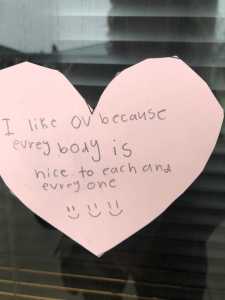 I like OV because
evrey body is
nice to each and
evrey one